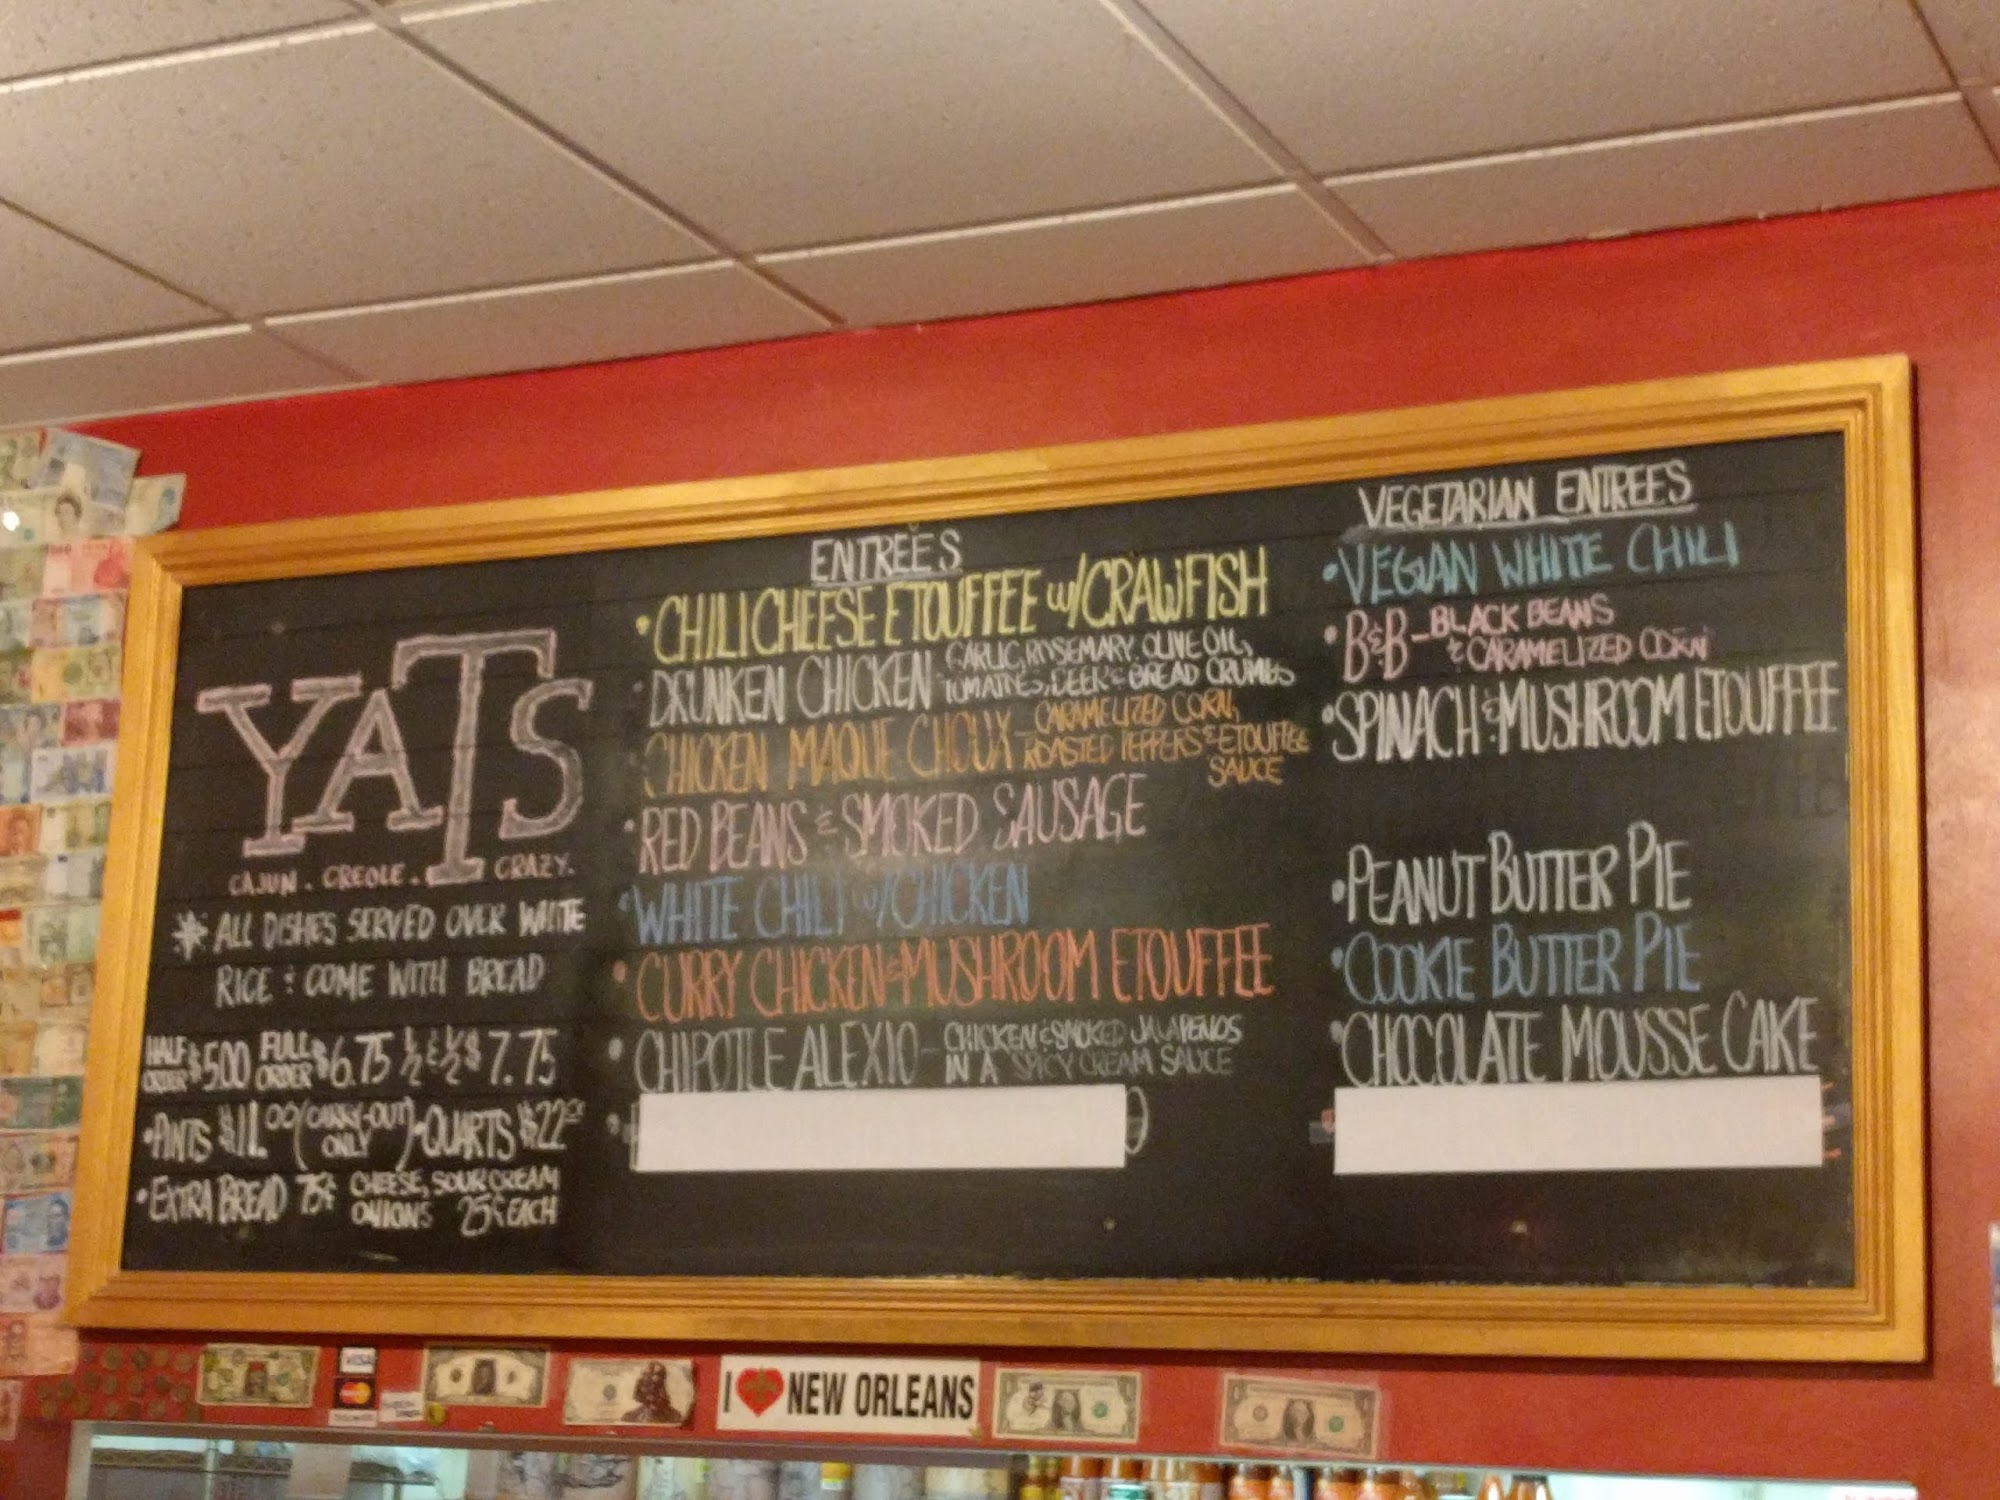 YATS
CAJUN. CREOLE. CRAZY.
* ALL DISHES SERVED OVER WHITE
RICE & COME WITH BREAD
HALF ORDER $5.00 FULL ORDER $6.75 ½ & ½ $7.75
• PINTS $11.00 (CARRY-OUT ONLY) • QUARTS $22
• EXTRA BREAD 75¢ CHEESE, SOUR CREAM
ONIONS 25¢ EACH
ENTREES
• CHILI CHEESE ETOUFFEE w/CRAWFISH
• DRUNKEN CHICKEN GARLIC, ROSEMARY, OLIVE OIL,
TOMATOES, BEER & BREAD CRUMBS
CHICKEN MAQUE CHOUX - CARAMELIZED CORN,
ROASTED PEPPERS & ETOUFFEE
SAUCE
• RED BEANS & SMOKED SAUSAGE
• WHITE CHILI w/CHICKEN
• CURRY CHICKEN & MUSHROOM ETOUFFEE
• CHIPOTLE ALEXIO - CHICKEN & SMOKED JALAPENOS
IN A SPICY CREAM SAUCE
VEGETARIAN ENTREES
• VEGAN WHITE CHILI
• B&B - BLACK BEANS
& CARAMELIZED CORN
• SPINACH & MUSHROOM ETOUFFEE
• PEANUT BUTTER PIE
• COOKIE BUTTER PIE
• CHOCOLATE MOUSSE CAKE
VISA
I NEW ORLEANS